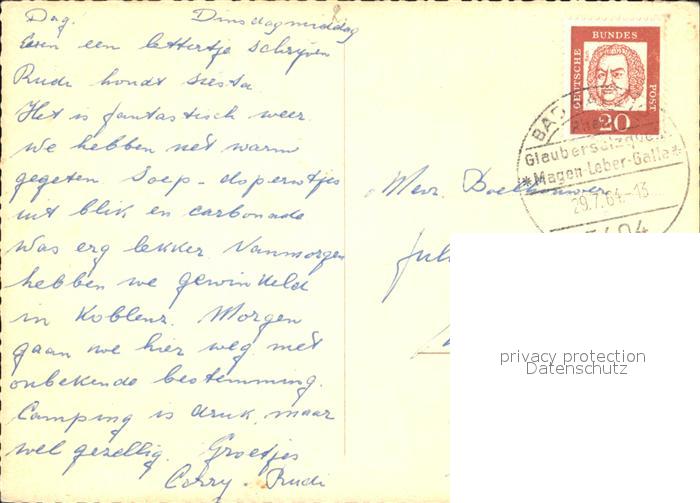 Dag. Dinsdagmiddag
Even een lettertje schrijven
Rudi houdt siesta.
Het is fantastisch weer.
We hebben net warm
gegeten Soep - doperwtjes
uit blik en carbonade
Was erg lekker. Vanmorgen
hebben we gewinkeld
in Koblenz. Morgen
gaan we hier weg met
onbekende bestemming.
Camping is druk, maar
wel gezellig. Groetjes
Corry - Rudi
DEUTSCHE BUNDES POST
20
BAD
Glaubersalzquelle
*Magen-Leber-Galle*
29.7.64.-13
5404
Mevr.
Jul
privacy protection
Datenschutz